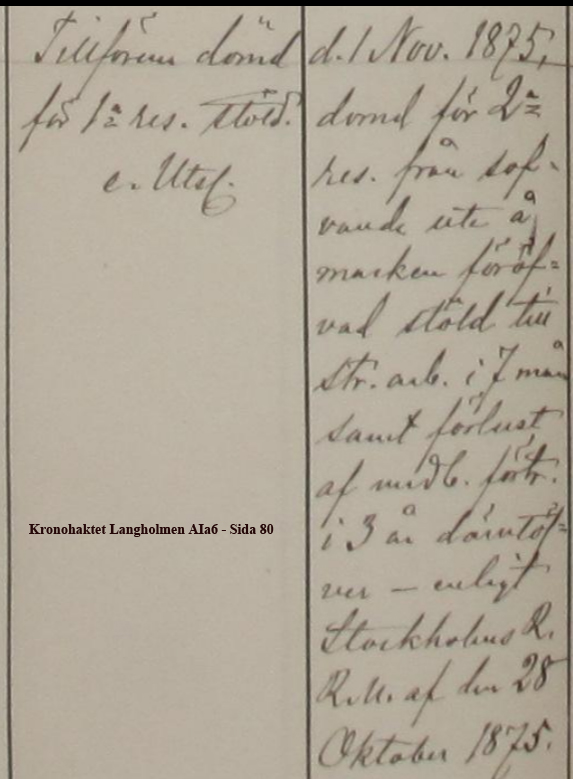 Tillförene dömd
för 1ª res. stöld.
c. Utsl.
d. 1 Nov. 1875,
dömd för 2ª
res. från sof-
vande ute å
marken föröf=
vad stöld till
str. arb. i 7 mån
samt förlust
af medb. förtr.
i 3 år därutöf=
ver – enligt
Stockholms R.
R. U. af den 28
Oktober 1875.
Kronohaktet Langholmen AIa6 - Sida 80